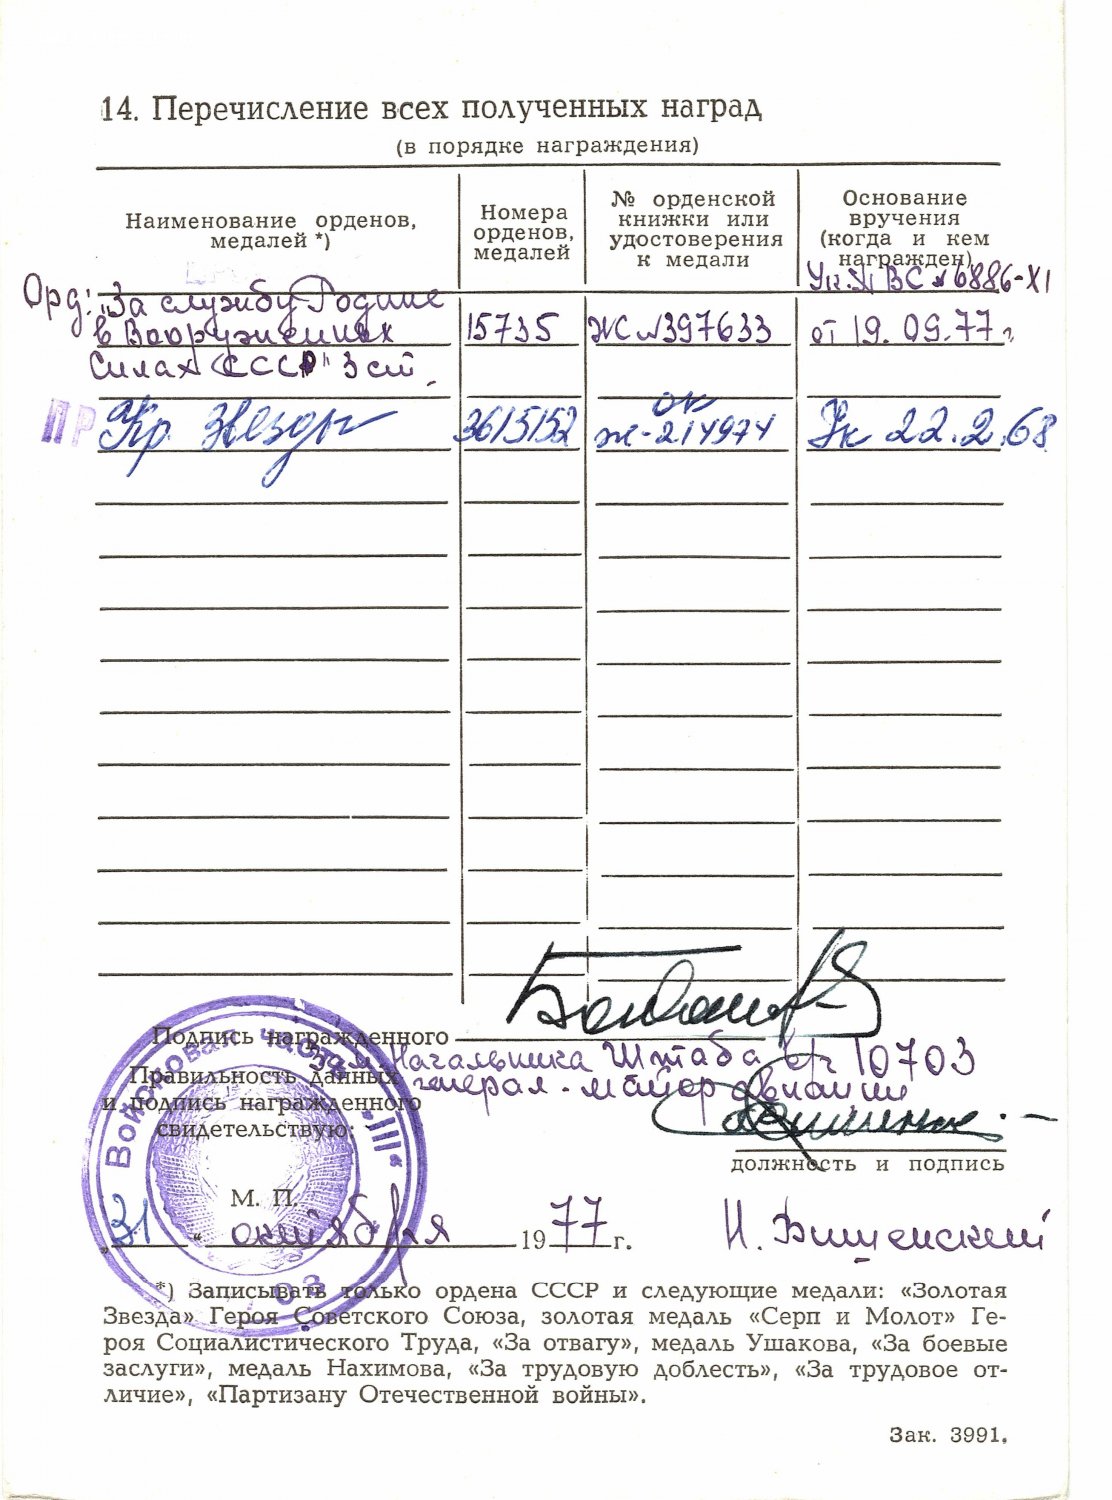 14. Перечисление всех полученных наград
(в порядке награждения)
Наименование орденов,
медалей *)
Номера
орденов,
медалей
№ орденской
книжки или
удостоверения
к медали
Основание
вручения
(когда и кем
награжден)
Ук. П ВС № 6886-XI
Орд: „За службу Родине
в Вооруженных
Силах СССР" 3 ст
15735
ЖС №397633
от 19.09.77 г.
ПР
Кр Звезды
3615152
ок
ж-214974
Ук 22.2.68
Подпись награжденного
Зам Начальника Штаба в/ч 10703
генерал-майор авиации
Правильность данных
и подпись награжденного
свидетельствую:
должность и подпись
М. П.
„31 “ октября 1977 г.
И. Вишенский
Войсковая часть „III“
03
*) Записывать только ордена СССР и следующие медали: «Золотая
Звезда» Героя Советского Союза, золотая медаль «Серп и Молот» Ге-
роя Социалистического Труда, «За отвагу», медаль Ушакова, «За боевые
заслуги», медаль Нахимова, «За трудовую доблесть», «За трудовое от-
личие», «Партизану Отечественной войны».
Зак. 3991.